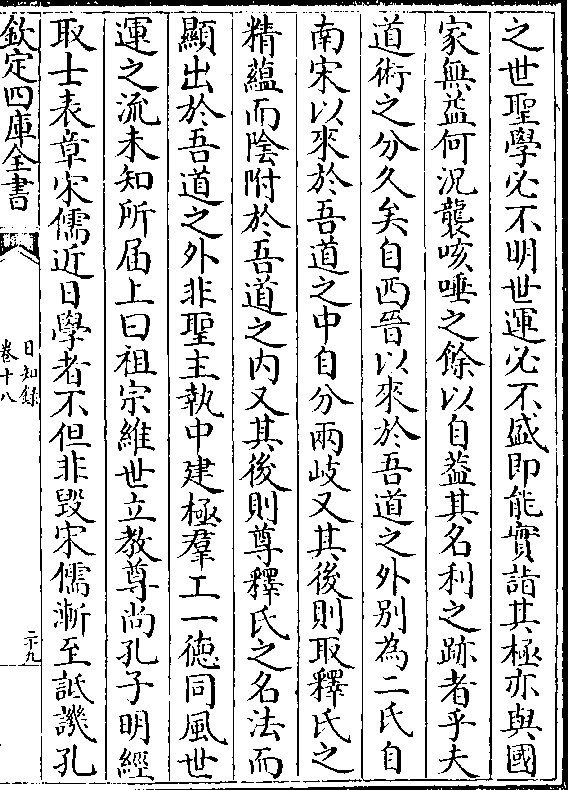 之世聖學必不明世運必不盛即能實詣其極亦與國
家無益何況襲咳唾之餘以自葢其名利之跡者乎夫
道術之分久矣自西晉以來於吾道之外别為二氏自
南宋以來於吾道之中自分兩岐又其後則取釋氏之
精藴而陰附於吾道之内又其後則尊釋氏之名法而
顯出於吾道之外非聖主執中建極羣工一徳同風世
運之流未知所届上曰祖宗維世立教尊尚孔子明經
取士表章宋儒近日學者不但非毀宋儒漸至詆譏孔
欽定四庫全書
日知錄
卷十八
二十九